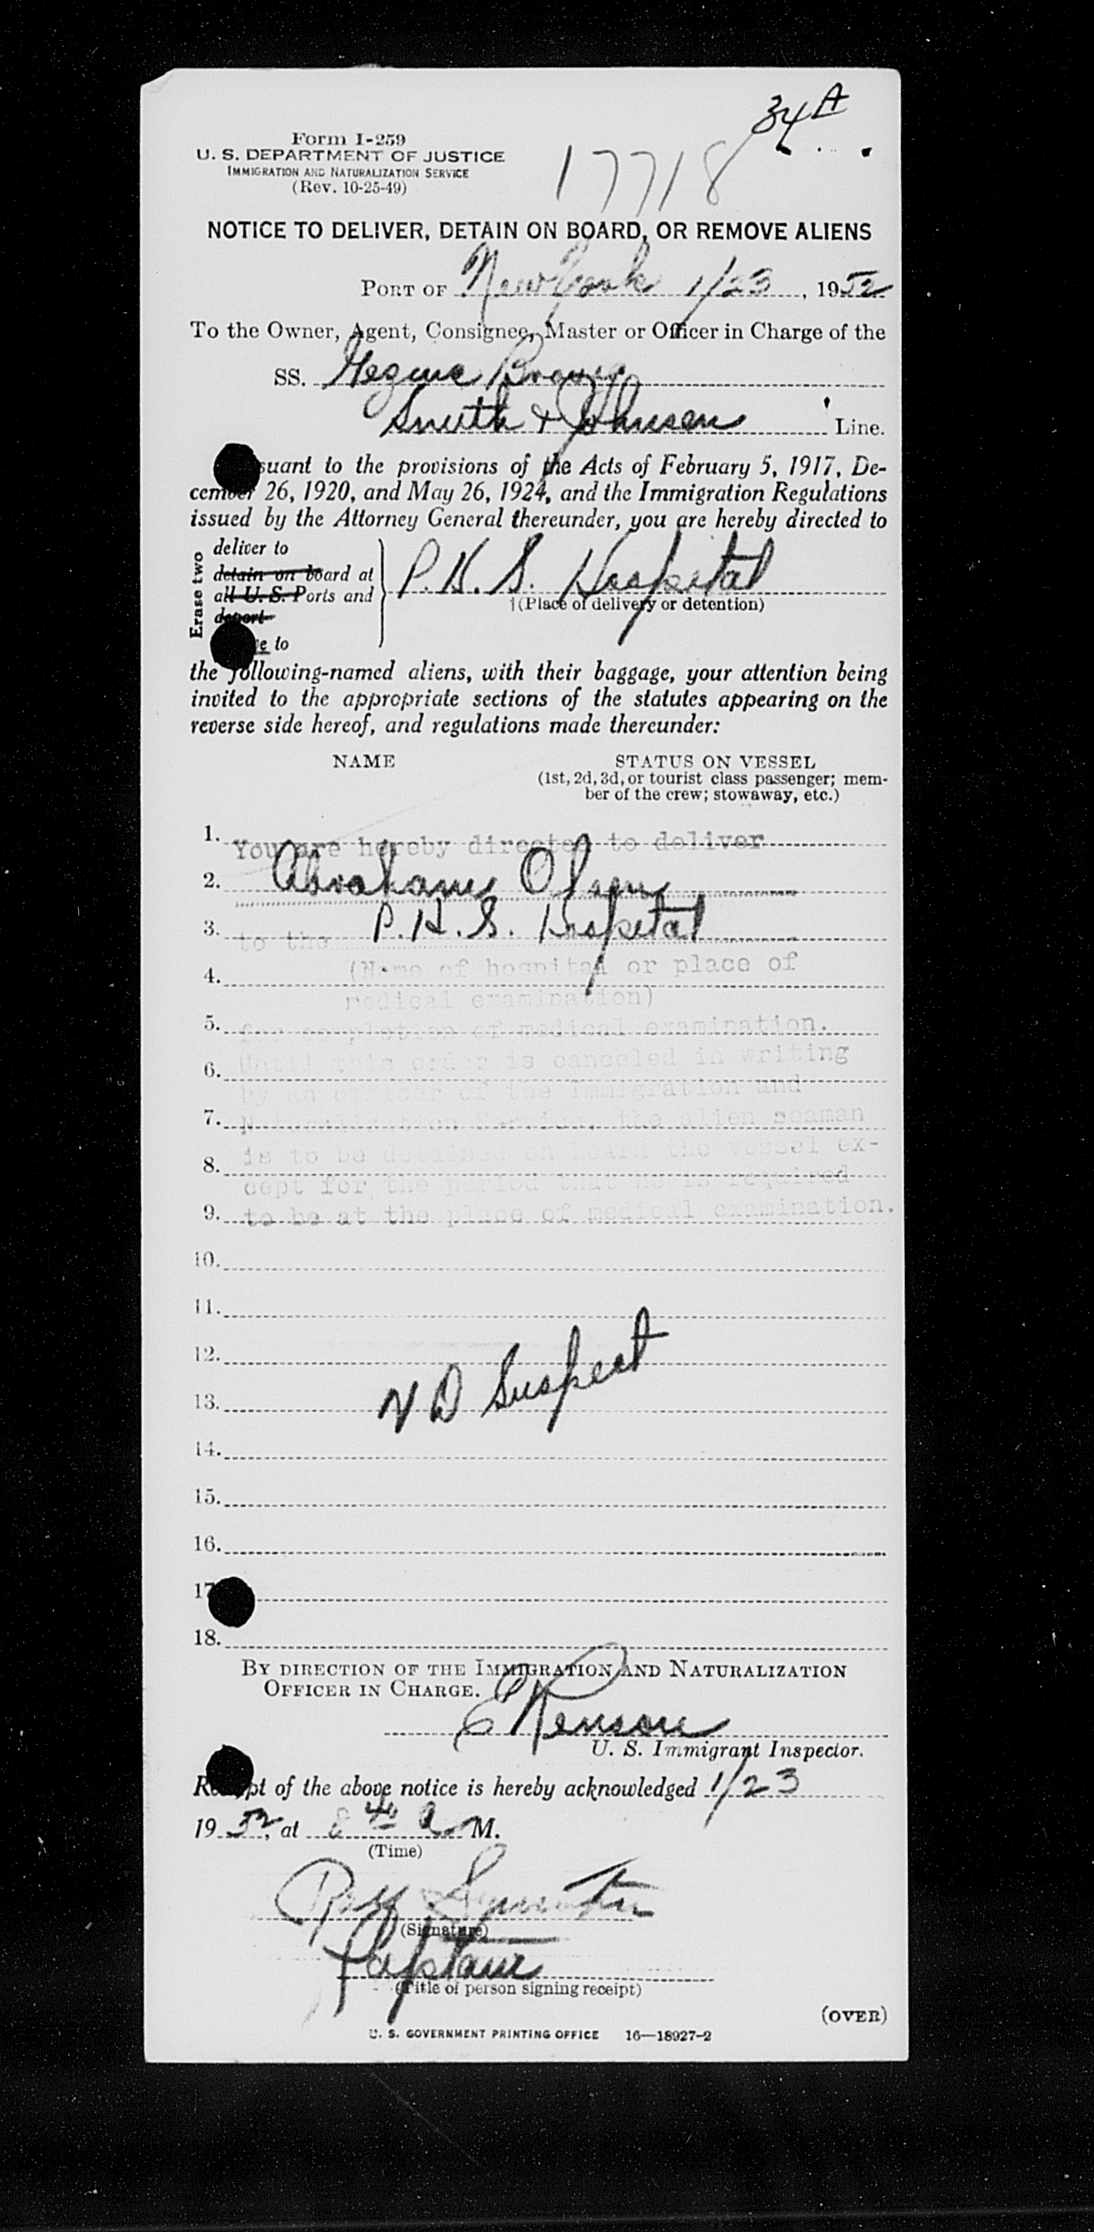 34 A
Form I-259
U. S. DEPARTMENT OF JUSTICE
IMMIGRATION AND NATURALIZATION SERVICE
(Rev. 10-25-49)
17718
NOTICE TO DELIVER, DETAIN ON BOARD, OR REMOVE ALIENS
PORT OF New York 1/23, 1952
To the Owner, Agent, Consignee, Master or Officer in Charge of the
SS. Gezina Brovig
Smith & Johnsen Line.
suant to the provisions of the Acts of February 5, 1917, De-
cember 26, 1920, and May 26, 1924, and the Immigration Regulations
issued by the Attorney General thereunder, you are hereby directed to
Erase two
deliver to
detain on board at
all U. S. Ports and
deport
to
P. H. S. Hospital
(Place of delivery or detention)
the following-named aliens, with their baggage, your attention being
invited to the appropriate sections of the statutes appearing on the
reverse side hereof, and regulations made thereunder:
NAME STATUS ON VESSEL
(1st, 2d, 3d, or tourist class passenger; mem-
ber of the crew; stowaway, etc.)
1. You are hereby directed to deliver
2. Abraham Olsen
3. to the P. H. S. Hospital
(Name of hospital or place of
4.
medical examination)
5. for completion of medical examination.
Until this order is canceled in writing
6.
by an officer of the Immigration and
7. Naturalization Service, the alien seaman
is to be detained on board the vessel ex-
8.
cept for the period that he is required
9. to be at the place of medical examination.
10.
11.
12.
13. V D Suspect
14.
15.
16.
17
18.
BY DIRECTION OF THE IMMIGRATION AND NATURALIZATION
OFFICER IN CHARGE.
U. S. Immigrant Inspector.
Receipt of the above notice is hereby acknowledged 1/23
1952, at 8 A M.
(Time)
(Signature)
Captain
(Title of person signing receipt)
(OVER)
U. S. GOVERNMENT PRINTING OFFICE 16—18927-2